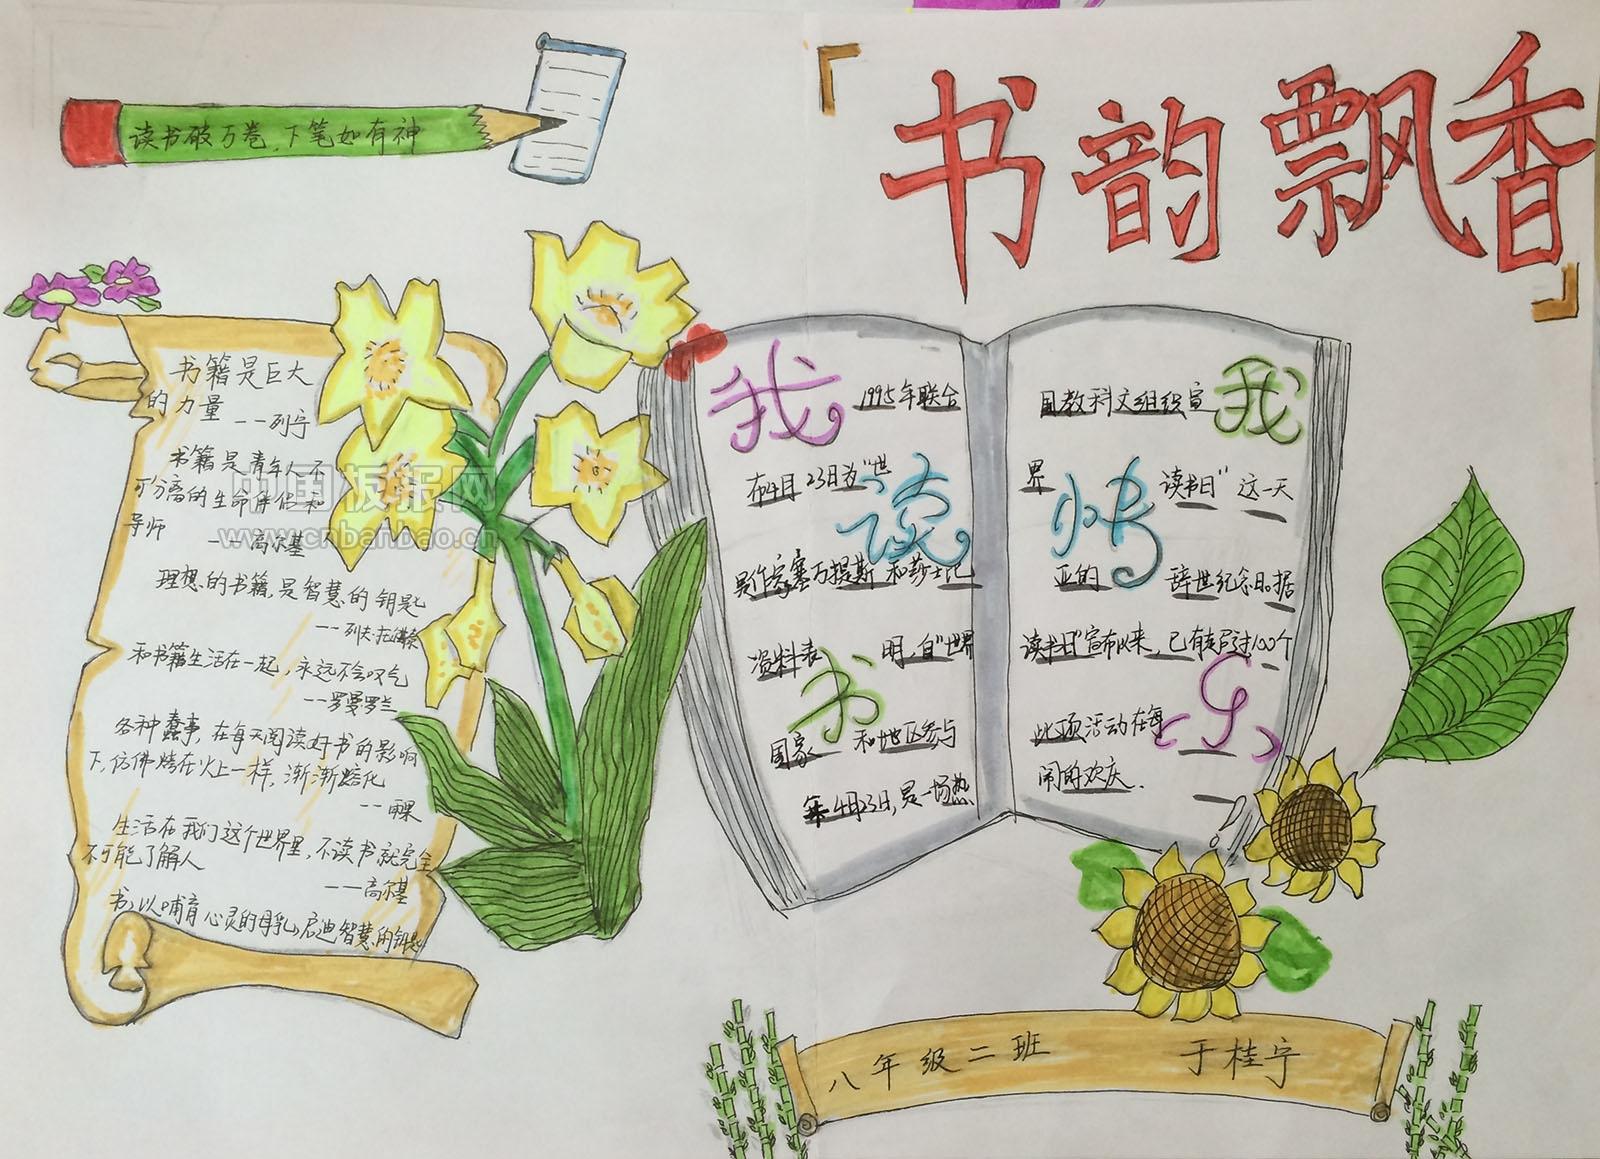 读书破万卷，下笔如有神
书韵飘香
书籍是巨大
的力量
——列宁
书籍是青年人不
可分离的生命伴侣和
导师
——高尔基
理想的书籍，是智慧的钥匙
——列夫·托尔斯泰
和书籍生活在一起，永远不会叹气
——罗曼罗兰
各种蠢事，在每天阅读好书的影响
下，仿佛烤在火上一样，渐渐熔化
——雨果
生活在我们这个世界里，不读书就完全
不可能了解人
——高尔基
书，以哺育心灵的母乳，启迪智慧的钥匙
我 1995年联合
布4月23日为“世
读
是作家塞万提斯和莎士比
资料表 明，自“世界
书
国家 和地区参与
年4月23日，是一场热
国教科文组织宣 我
界 读书日”这一天
快
亚的 辞世纪念日。据
读书日”宣布以来，已有超过100个
此项活动在每 乐
闹的欢庆.
!
八年级二班 于桂宁
中国板报网
www.cnbanbao.cn